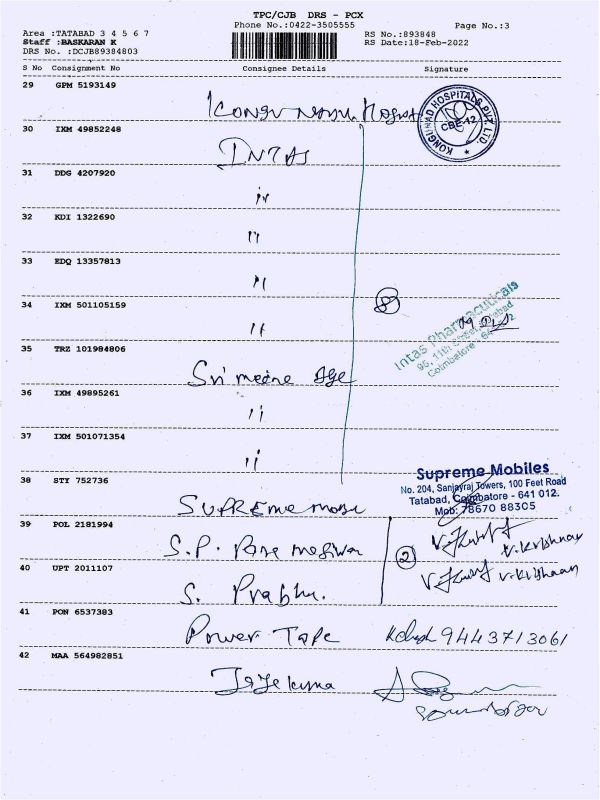 TPC/CJB DRS - PCX
Phone No.:0422-3505555
Page No.:3
Area :TATABAD 3 4 5 6 7
Staff :BASKARAN K
DRS No. :DCJB89384803
RS No.:893848
RS Date:18-Feb-2022
S No Consignment No Consignee Details Signature
29 GPM 5193149
KONGUNAD HOSPITALS PVT. LTD.
CBE-12
30 IXM 49852248
INTAS
31 DDG 4207920
"
32 KDI 1322690
"
33 EDQ 13357813
"
34 IXM 501105159
"
8
Intas Pharmaceuticals
Coimbatore
35 TRZ 101984806
Sri
36 IXM 49895261
"
37 IXM 501071354
"
38 STY 752736
Supreme Mobiles
No. 204, Sanjayraj Towers, 100 Feet Road
Tatabad, Coimbatore - 641 012.
Mob: 78670 88305
39 POL 2181994
S.P.
2
V. Krishnan
40 UPT 2011107
S. Prabhu.
V. Krishnan
41 PON 6537383
Power Tape 9443713061
42 MAA 564982851